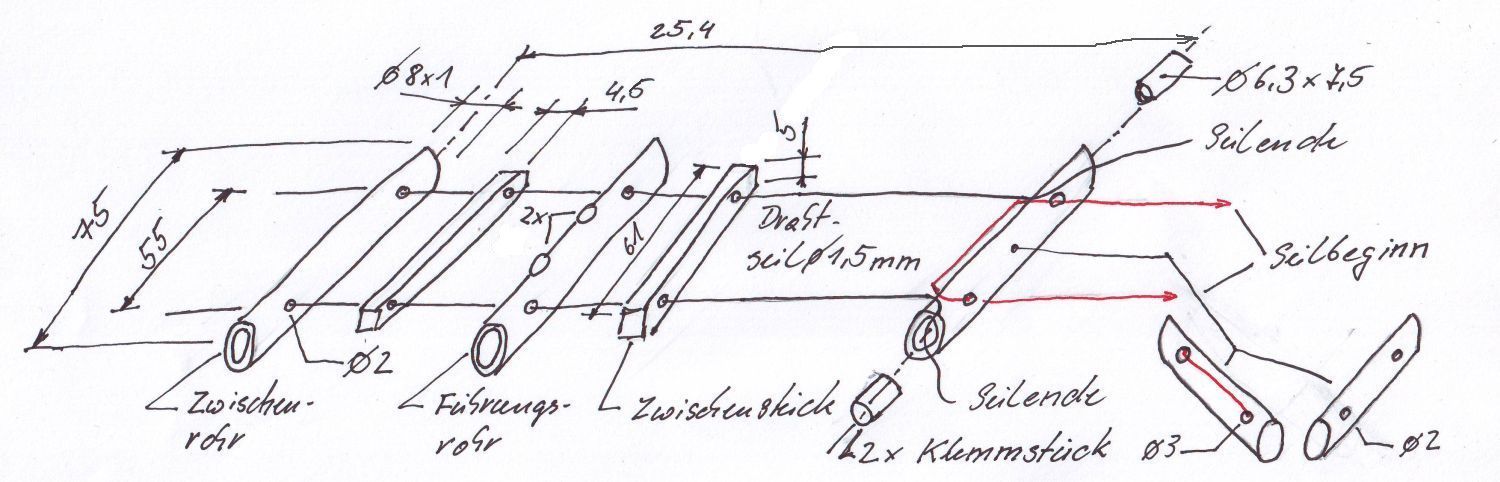 25,4
Ø8x1
4,5
Ø6,3x7,5
5
Seilende
75
55
2x
61
Draht-
seilØ1,5mm
Seilbeginn
Ø2
Zwischen-
rohr
Führungs-
rohr
Zwischenstück
Seilende
2x Klemmstück
Ø3
Ø2